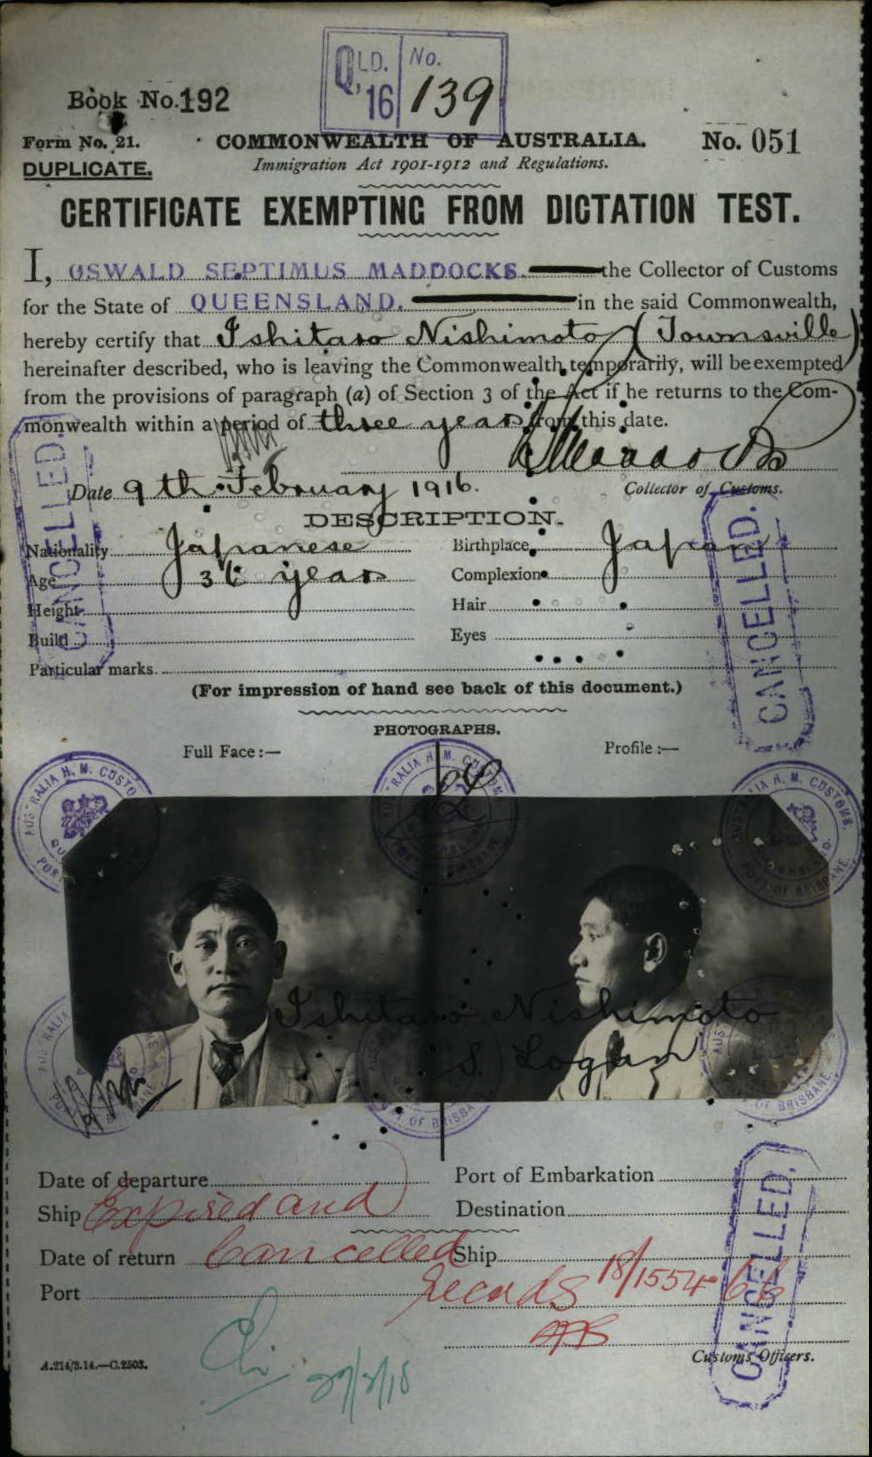 QLD. No.
'16 139
Book No. 192
Form No. 21. COMMONWEALTH OF AUSTRALIA. No. 051
DUPLICATE. Immigration Act 1901-1912 and Regulations.
CERTIFICATE EXEMPTING FROM DICTATION TEST.
I, OSWALD SEPTIMUS MADDOCKS. the Collector of Customs
for the State of QUEENSLAND. in the said Commonwealth,
hereby certify that Ishitaro Nishimoto (Townsville)
hereinafter described, who is leaving the Commonwealth temporarily, will be exempted
from the provisions of paragraph (a) of Section 3 of the Act if he returns to the Com-
monwealth within a period of three years from this date.
Maddocks
Date 9th February 1916. Collector of Customs.
CANCELLED.
DESCRIPTION.
Nationality Japanese Birthplace Japan
Age 36 years Complexion
Height Hair
Build Eyes
Particular marks.
CANCELLED.
(For impression of hand see back of this document.)
PHOTOGRAPHS.
Full Face:— Profile:—
Ishitaro Nishimoto
S. Logan
Date of departure Port of Embarkation
Ship Expired and Destination
Date of return Cancelled Ship
Port Records 18/1554
CANCELLED.
Customs Officers.
A.214/3.14.—C.2503.